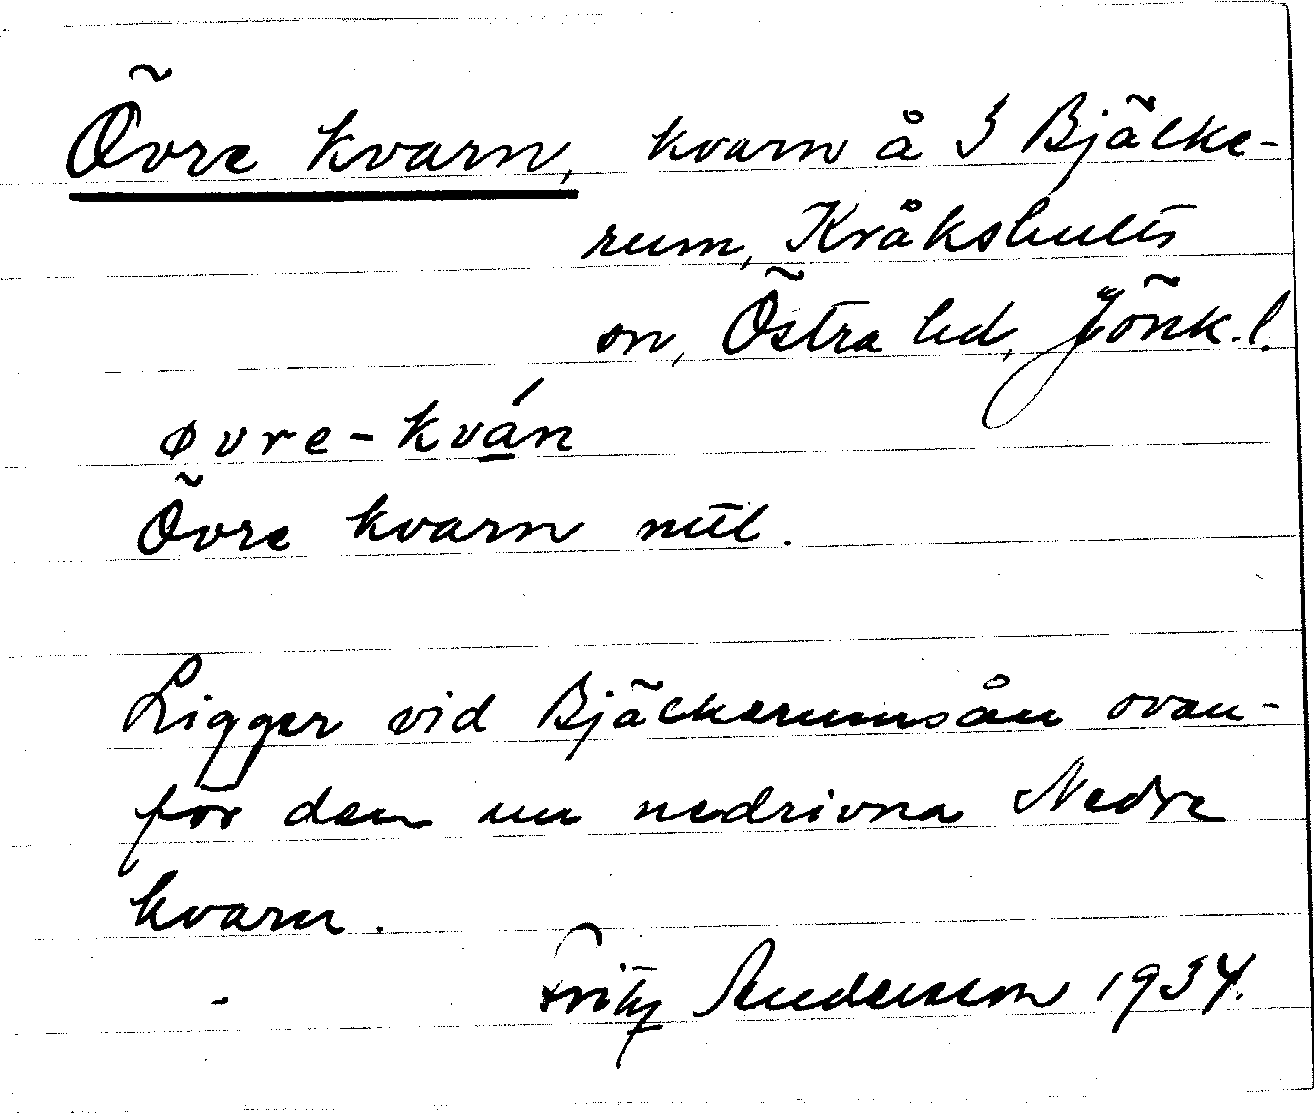 Övre kvarn, kvarn å S Bjälke-
rum, Kråkshults
sn, Östra hd, Jönk.l.
øvre-kván
Övre kvarn mtl.
Ligger vid Bjälkerumsån ovan-
för den nu nedrivna Nedre
kvarn.
Fritz Andersson 1934.